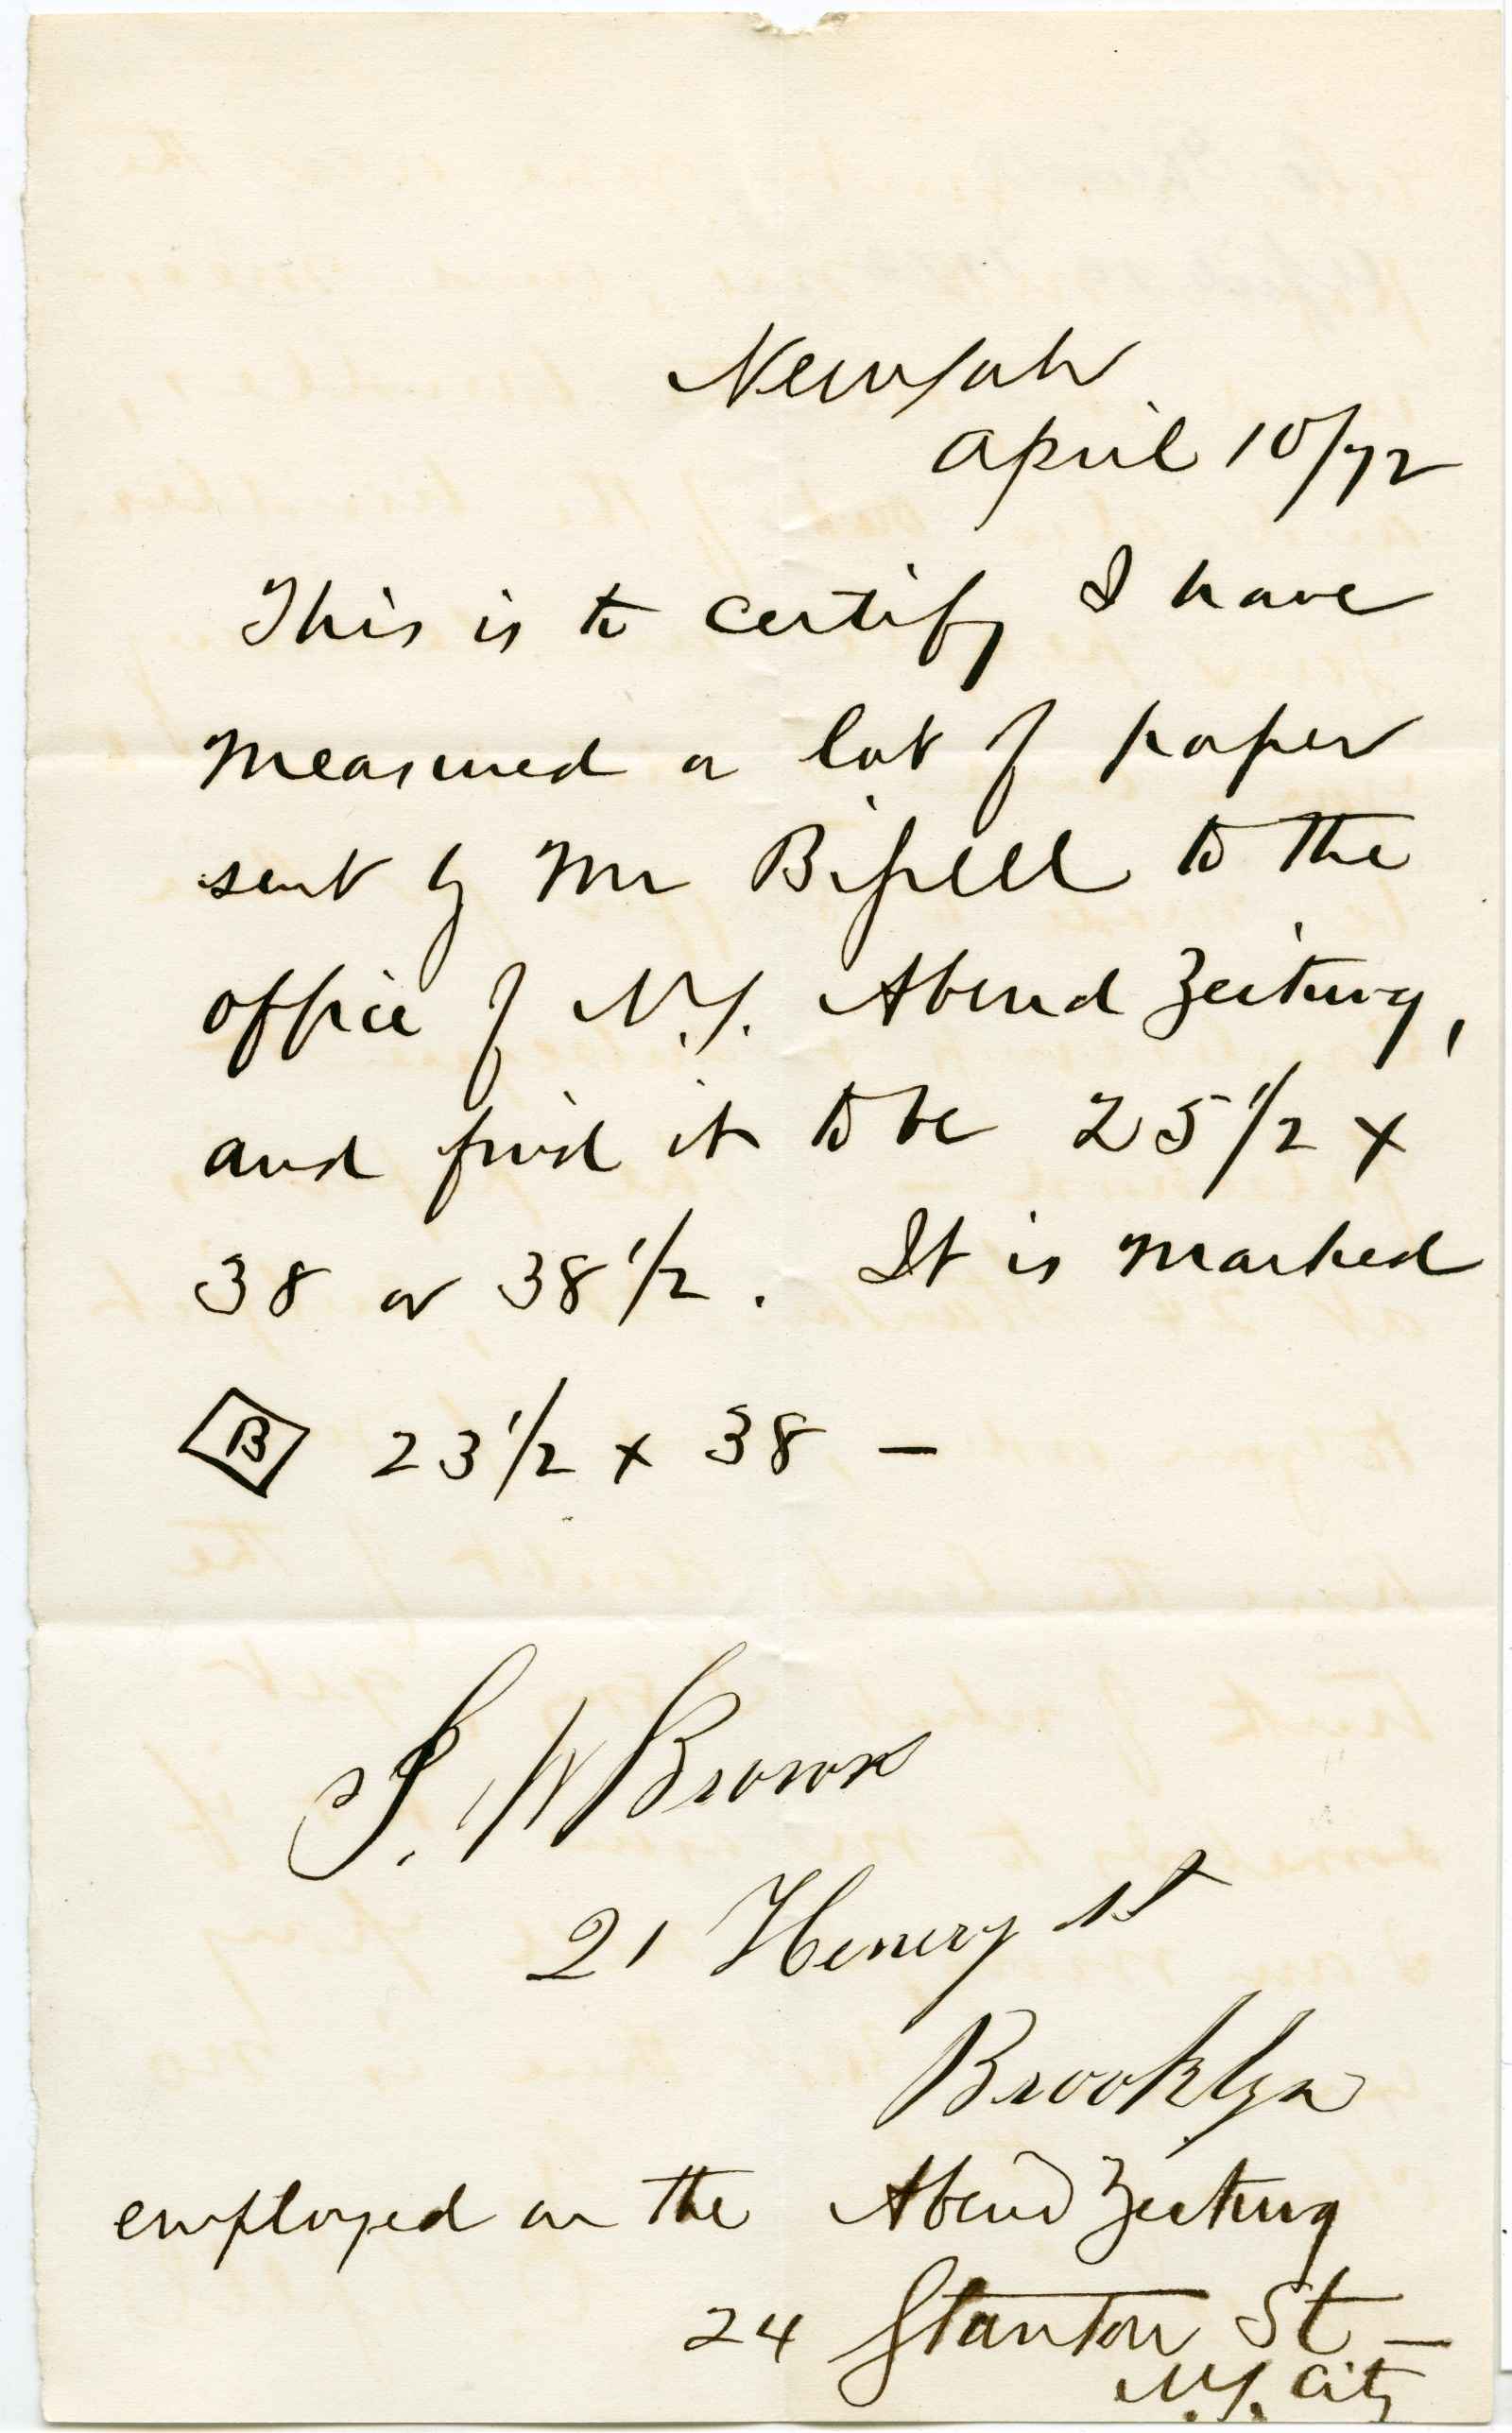 New York
April 10/72
This is to certify I have
measured a lot of paper
sent by Mr Bissell to the
office of N.Y. Abend Zeitung,
and find it to be 25 1/2 x
38 or 38 1/2. It is marked
B 23 1/2 x 38 —
S. W Brown
21 Henery st
Brooklyn
employed on the Abend Zeitung
24 Stanton St —
N.Y. City